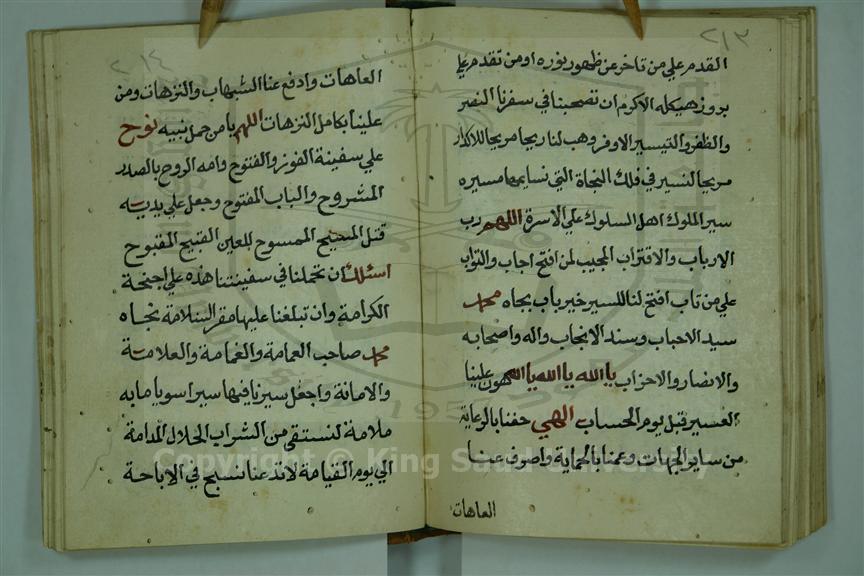 ٢١٣
القدم علي من تاخر عن ظهور نوره او من تقدم علي
بروز هيكله الاكرم ان تصحبنا في سفرنا النصر
والظفر والتيسير الاوفر وهب لنا ريحا مريحا للاكدار
مريحا لنسير في فلك النجاة التي نسايمها مسيره
سير الملوك اهل السلوك علي الاسرة اللهم رب
الارباب والاقتراب المجيب لمن افتح اجاب والتواب
علي من تاب افتح لنا للسير خير باب بجاه محمد
سيد الاحباب وبسند الانجاب واله واصحابه
والانصار والاحزاب يا الله يا الله يا الله هون علينا
العسير قبل يوم الحساب الهي حفنا بالرعاية
من ساير الجهات وعمنا بالحماية واصرف عنا
العاهات
٢١٤
العاهات وادفع عنا الشبهات والنزهات ومن
علينا بكامل النزهات اللهم يا من حمل نبيه نوح
علي سفينة الفوز والفتوح وامه الروح بالصدر
المشروح والباب المفتوح وجعل علي يديته
قتل المسيح الممسوح للعين القبيح المقبوح
اسئلك ان تحملنا في سفينتنا هذه علي اجنحة
الكرامة وان تبلغنا عليها مقر السلامة بجاه
محمد صاحب العمامة والغمامة والعلامة
والامانة واجعل سيرنا فيها سيرا سويا ما به
ملامة لنستقي من الشراب الحلال المدامة
الي يوم القيامة لا تدعنا نسبح في الاباحة
Copyright © King Saud University
1957